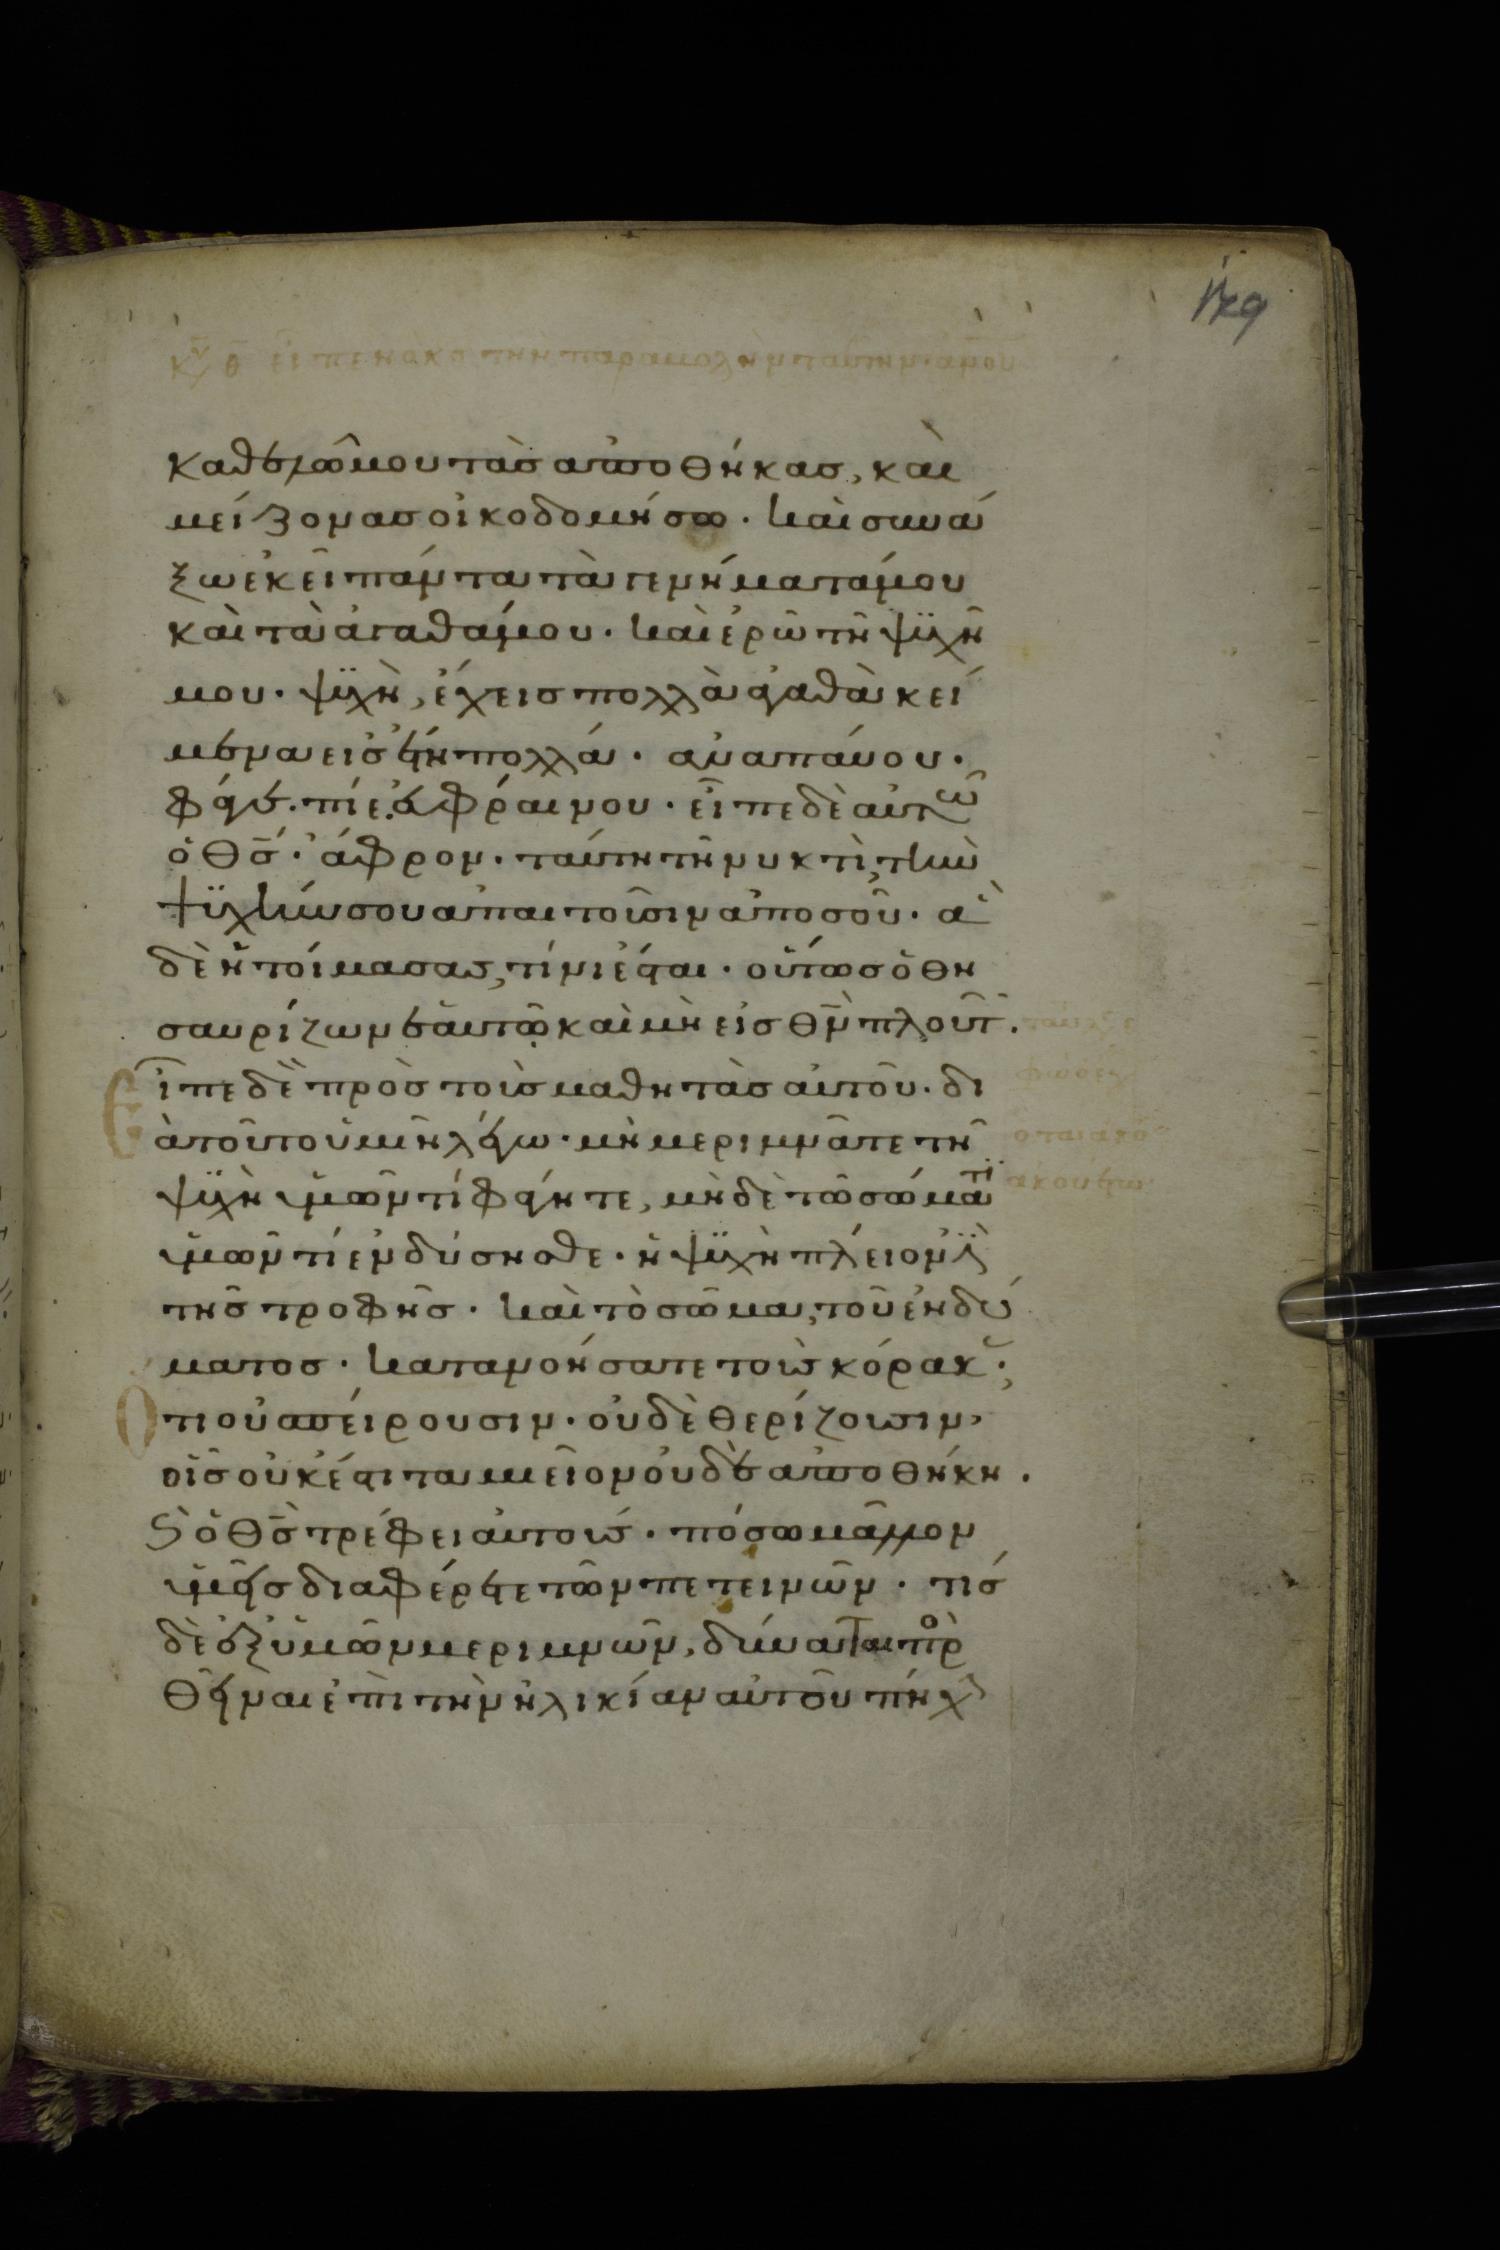 εἶπεν ὁ κς την παραβολὴν ταύτην
καθελῶ μου τὰς ἀποθήκας, καὶ
μείζονας οἰκοδομήσω. καὶ συνά
ξω ἐκεῖ πάντα τὰ γενήματά μου
καὶ τὰ ἀγαθά μου. καὶ ἐρῶ τῆ ψϋχῆ
μου. ψϋχὴ, ἔχεις πολλὰ ἀγαθὰ κεί
μενα εἰς ἔτη πολλά. ἀναπάυου.
φάγε. πίε. εὐφράινου. εἶπε δὲ αὐτῶ
ὁ θς. ἄφρον. ταύτη τῆ νυκτὶ, τὴν
ψϋχήν σου ἀπαιτοῦσιν ἀπο σοῦ. ἃ
δὲ ἡτοίμασας, τίνι ἔσται. οὕτως ὁ θη
σαυρίζων ἑαυτῶ καὶ μὴ εἰς θν πλουτ.
Εἶπε δὲ πρὸς τοὺς μαθητὰς αὐτοῦ. δι
ὰ τοῦτο ὑμῖν λέγω. μὴ μεριμνᾶτε τῆ
ψϋχῆ ὑμῶν τί φάγητε, μὴ δὲ τῶ σώματϊ
ὑμῶν τί ἐνδύσησθε. ἡ ψϋχὴ πλεῖον ἐστϊ
τῆς τροφῆς. καὶ τὸ σῶμα, τοῦ ἐνδύ
ματος. κατανοήσατε τοὺς κόρακ.
Ὅτι οὐ σπείρουσιν. οὐδὲ θερίζουσιν,
οἷς οὐκ ἔστι ταμεῖον οὐδὲ ἀποθήκη.
ϗ ὁ θς τρέφει αὐτούς. πόσω μᾶλλον
ὑμεῖς διαφέρετε τῶν πετεινῶν. τίς
δὲ ἐξ ὑμῶν μεριμνῶν, δύναται προ
θεῖναι ἐπὶ τὴν ἡλικίαν αὐτοῦ πήχ